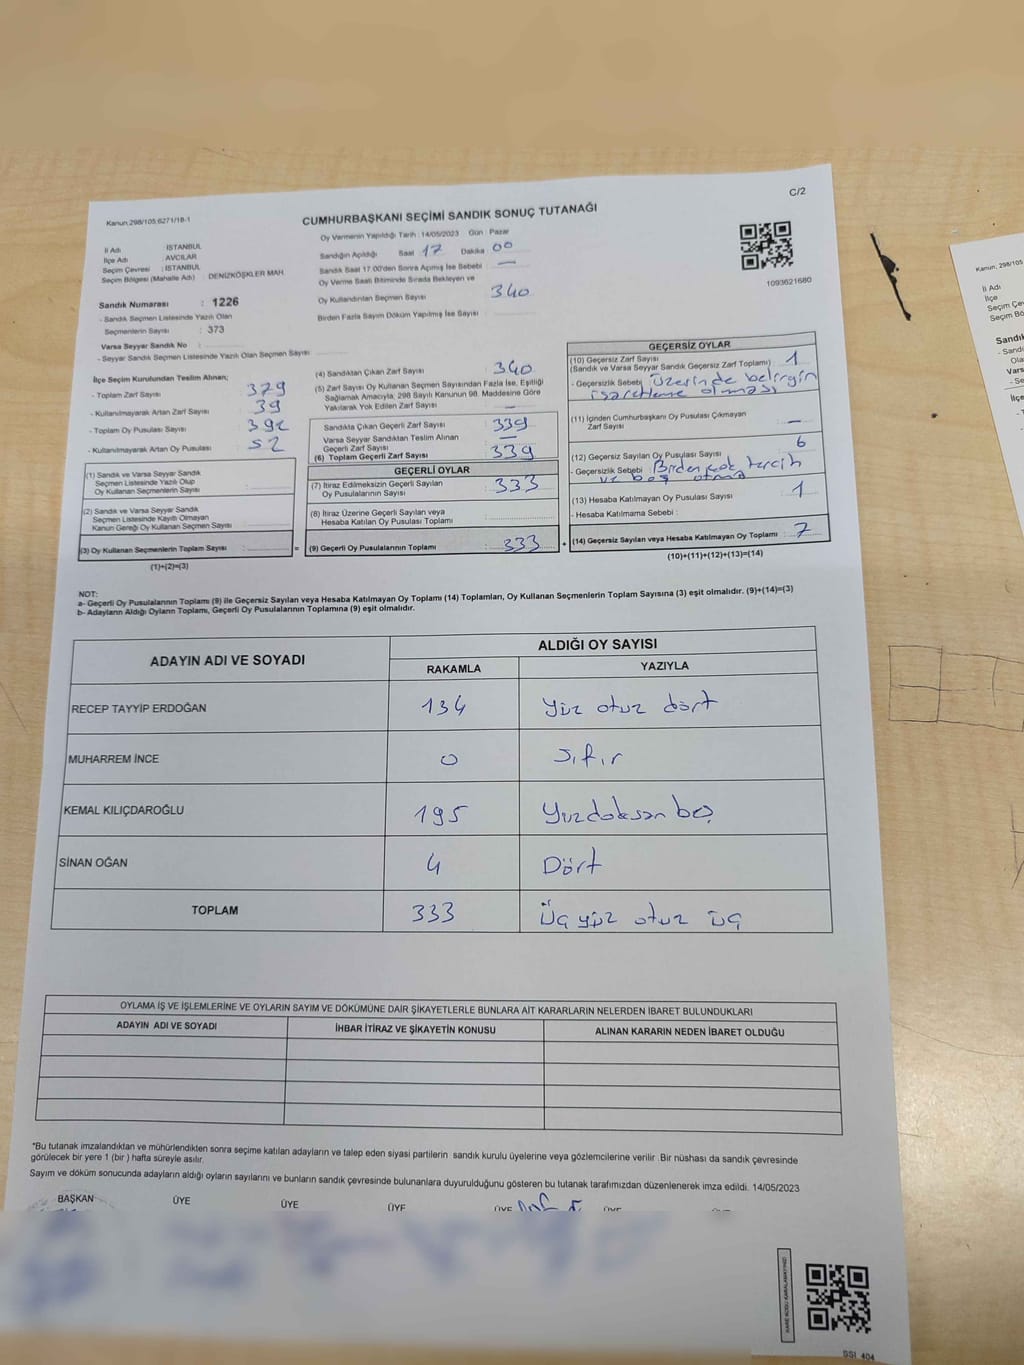 C/2
Kanun:298/105,6271/18-1
CUMHURBAŞKANI SEÇİMİ SANDIK SONUÇ TUTANAĞI
İl Adı : İSTANBUL
İlçe Adı : AVCILAR
Seçim Çevresi : İSTANBUL
Seçim Bölgesi (Mahalle Adı) : DENİZKÖŞKLER MAH.
Sandık Numarası : 1226
- Sandık Seçmen Listesinde Yazılı Olan
Seçmenlerin Sayısı : 373
Varsa Seyyar Sandık No :
- Seyyar Sandık Seçmen Listesinde Yazılı Olan Seçmen Sayısı :
Oy Vermenin Yapıldığı Tarih : 14/05/2023 Gün : Pazar
Sandığın Açıldığı Saat 17 Dakika 00
Sandık Saat 17.00'den Sonra Açılmış İse Sebebi : —
Oy Verme Saati Bitiminde Sırada Bekleyen ve
Oy Kullandırılan Seçmen Sayısı : 340
Birden Fazla Sayım Döküm Yapılmış İse Sayısı :
1093621680
İlçe Seçim Kurulundan Teslim Alınan;
- Toplam Zarf Sayısı : 379
- Kullanılmayarak Artan Zarf Sayısı : 39
- Toplam Oy Pusulası Sayısı : 392
- Kullanılmayarak Artan Oy Pusulası : 52
(1) Sandık ve Varsa Seyyar Sandık
Seçmen Listesinde Yazılı Olup
Oy Kullanan Seçmenlerin Sayısı :
(2) Sandık ve Varsa Seyyar Sandık
Seçmen Listesinde Kayıtlı Olmayan
Kanun Gereği Oy Kullanan Seçmen Sayısı :
(3) Oy Kullanan Seçmenlerin Toplam Sayısı :
(1)+(2)=(3)
(4) Sandıktan Çıkan Zarf Sayısı : 340
(5) Zarf Sayısı Oy Kullanan Seçmen Sayısından Fazla İse, Eşitliği
Sağlamak Amacıyla, 298 Sayılı Kanunun 98. Maddesine Göre
Yakılarak Yok Edilen Zarf Sayısı : —
Sandıkta Çıkan Geçerli Zarf Sayısı : 339
Varsa Seyyar Sandıktan Teslim Alınan
Geçerli Zarf Sayısı : —
(6) Toplam Geçerli Zarf Sayısı : 339
GEÇERLİ OYLAR
(7) İtiraz Edilmeksizin Geçerli Sayılan
Oy Pusulalarının Sayısı : 333
(8) İtiraz Üzerine Geçerli Sayılan veya
Hesaba Katılan Oy Pusulası Toplamı :
= (9) Geçerli Oy Pusulalarının Toplamı : 333 +
GEÇERSİZ OYLAR
(10) Geçersiz Zarf Sayısı
(Sandık ve Varsa Seyyar Sandık Geçersiz Zarf Toplamı) : 1
- Geçersizlik Sebebi : Üzerinde belirgin
işaretleme olması
(11) İçinden Cumhurbaşkanı Oy Pusulası Çıkmayan
Zarf Sayısı : —
(12) Geçersiz Sayılan Oy Pusulası Sayısı : 6
- Geçersizlik Sebebi : Birden çok tercih
ve boş olması
(13) Hesaba Katılmayan Oy Pusulası Sayısı : 1
- Hesaba Katılmama Sebebi :
(14) Geçersiz Sayılan veya Hesaba Katılmayan Oy Toplamı : 7
(10)+(11)+(12)+(13)=(14)
NOT:
a- Geçerli Oy Pusulalarının Toplamı (9) ile Geçersiz Sayılan veya Hesaba Katılmayan Oy Toplamı (14) Toplamları, Oy Kullanan Seçmenlerin Toplam Sayısına (3) eşit olmalıdır. (9)+(14)=(3)
b- Adayların Aldığı Oyların Toplamı, Geçerli Oy Pusulalarının Toplamına (9) eşit olmalıdır.
ADAYIN ADI VE SOYADI ALDIĞI OY SAYISI
RAKAMLA YAZIYLA
RECEP TAYYİP ERDOĞAN 134 Yüz otuz dört
MUHARREM İNCE 0 Sıfır
KEMAL KILIÇDAROĞLU 195 Yüzdoksan beş
SİNAN OĞAN 4 Dört
TOPLAM 333 Üç yüz otuz üç
OYLAMA İŞ VE İŞLEMLERİNE VE OYLARIN SAYIM VE DÖKÜMÜNE DAİR ŞİKAYETLERLE BUNLARA AİT KARARLARIN NELERDEN İBARET BULUNDUKLARI
ADAYIN ADI VE SOYADI İHBAR İTİRAZ VE ŞİKAYETİN KONUSU ALINAN KARARIN NEDEN İBARET OLDUĞU
*Bu tutanak imzalandıktan ve mühürlendikten sonra seçime katılan adayların ve talep eden siyasi partilerin sandık kurulu üyelerine veya gözlemcilerine verilir. Bir nüshası da sandık çevresinde
görülecek bir yere 1 (bir) hafta süreyle asılır.
Sayım ve döküm sonucunda adayların aldığı oyların sayılarını ve bunların sandık çevresinde bulunanlara duyurulduğunu gösteren bu tutanak tarafımızdan düzenlenerek imza edildi. 14/05/2023
BAŞKAN ÜYE ÜYE ÜYE ÜYE ÜYE ÜYE
KARE KODU KARALAMAYINIZ!
SSI 404
Kanun: 298/105
İl Adı
İlçe
Seçim Çev
Seçim Bö